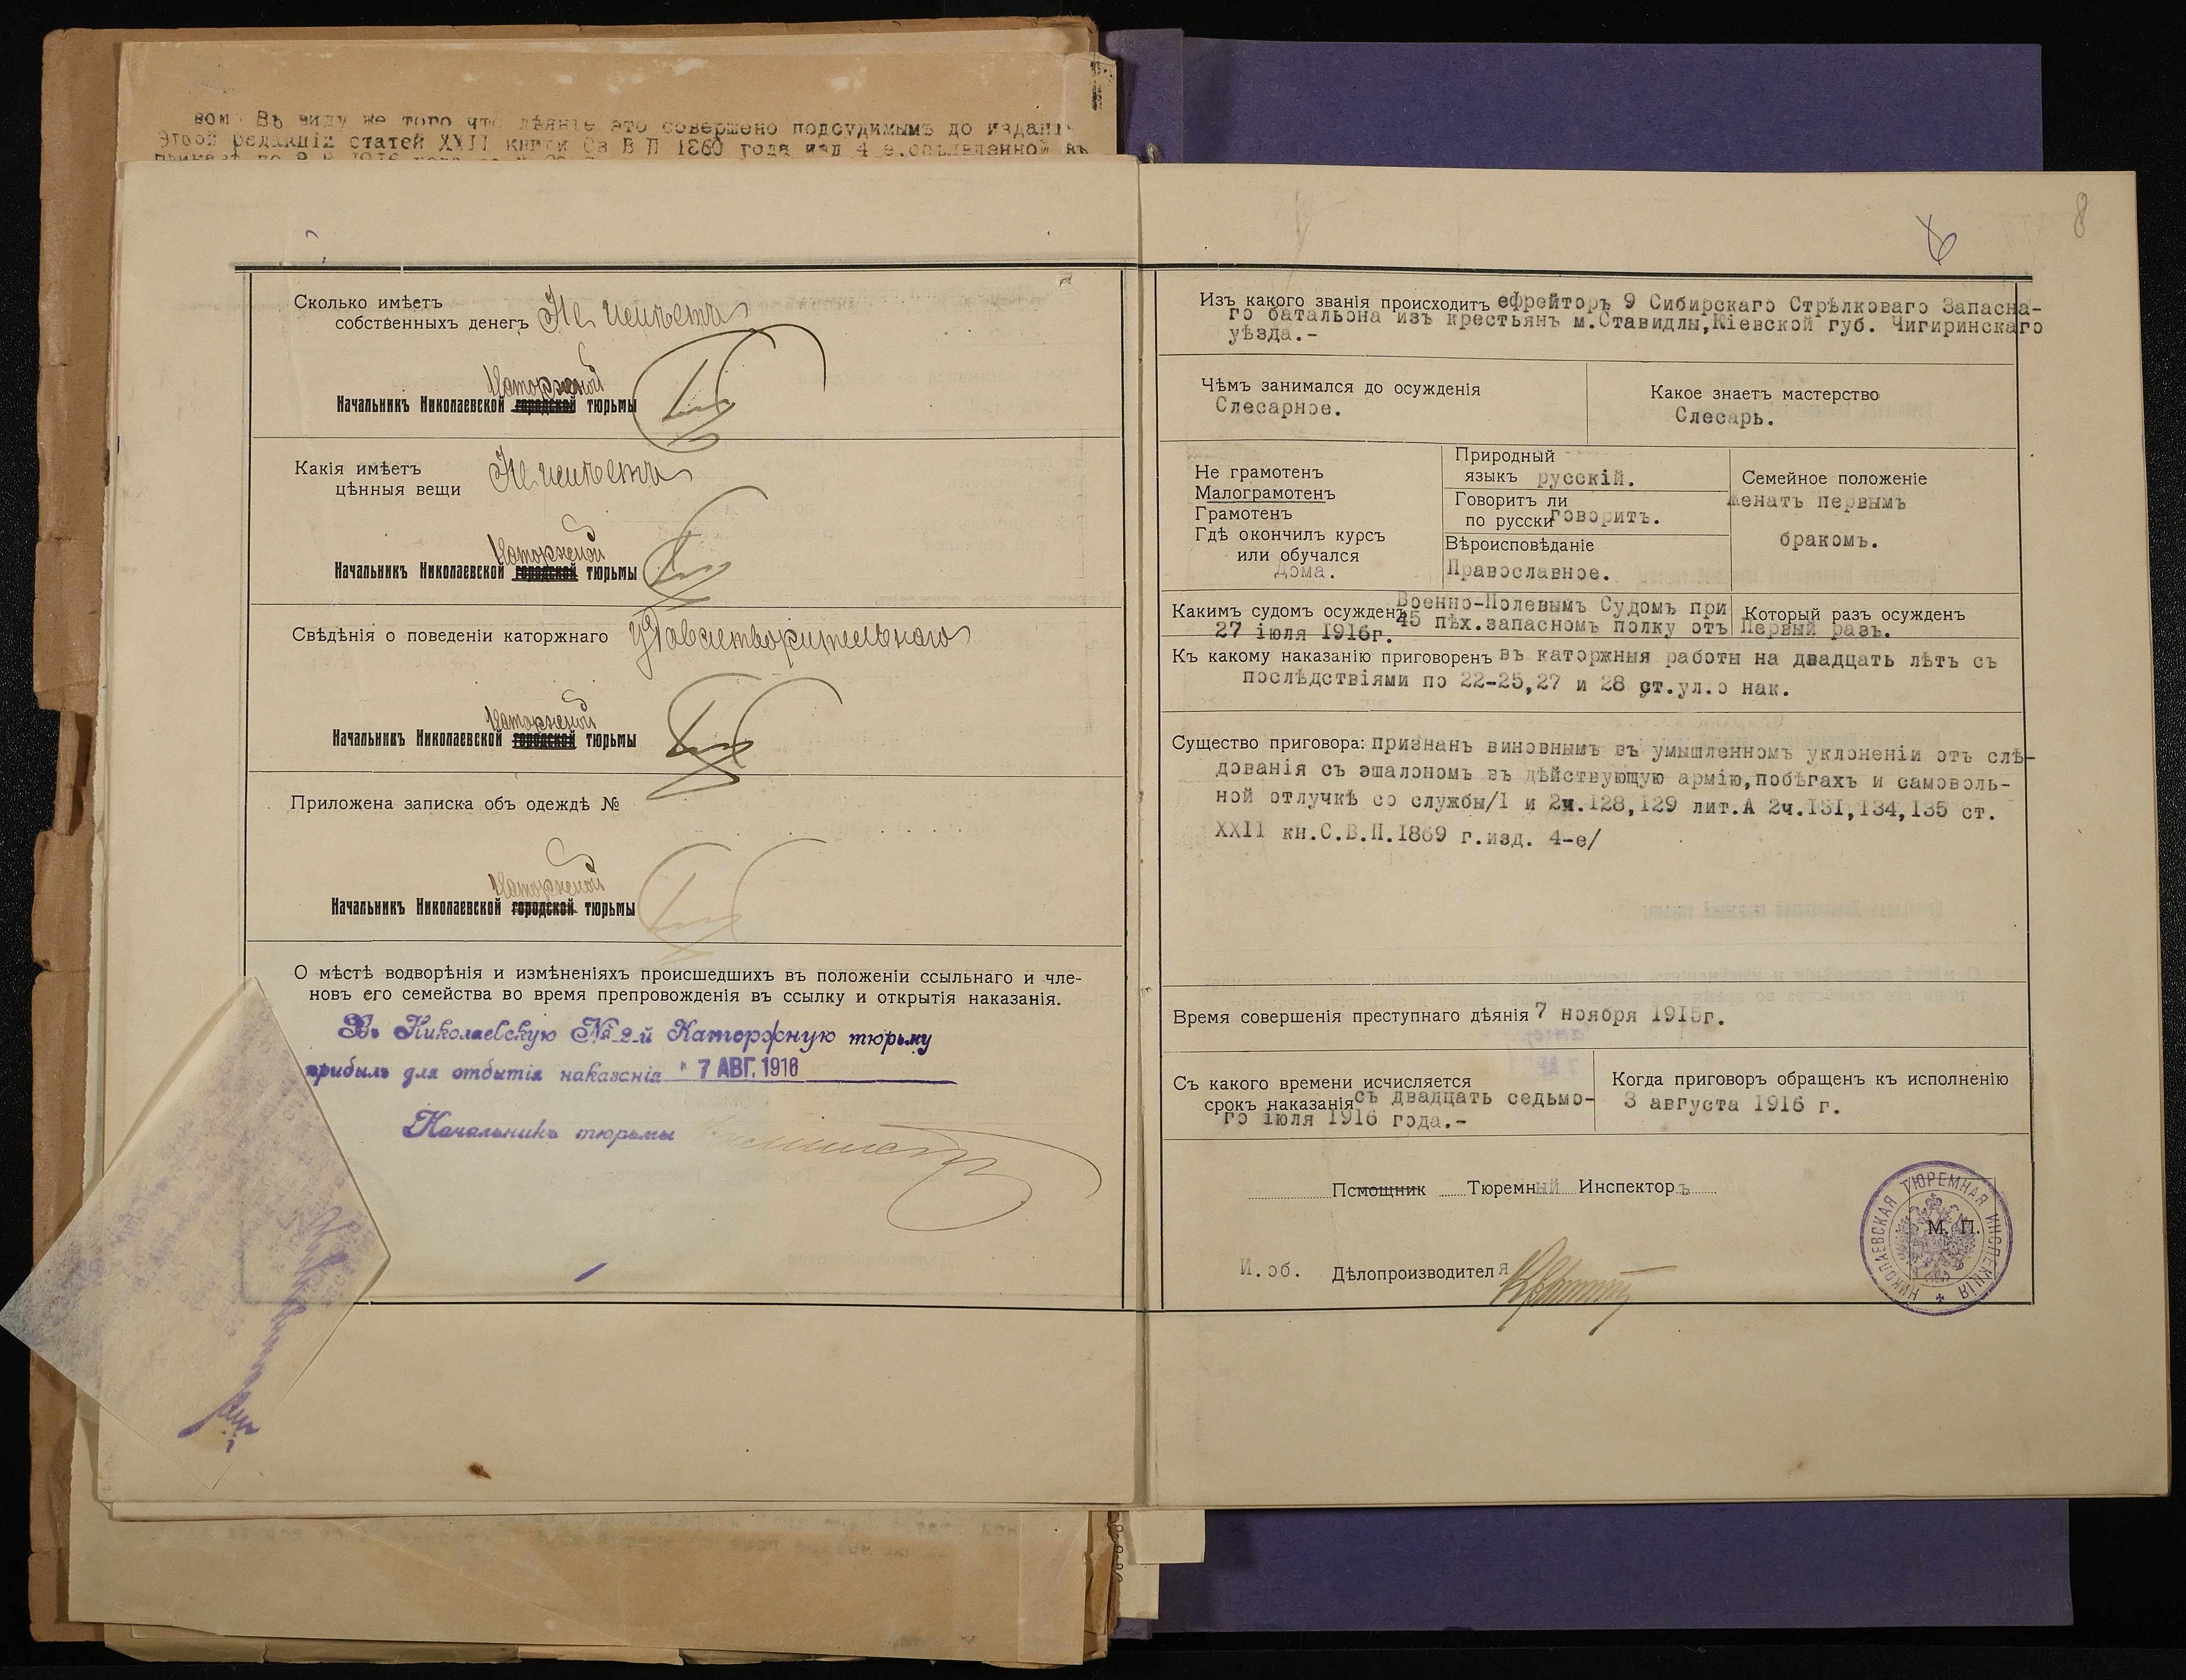 вом Въ виду же того что дѣяніе это совершено подсудимымъ до изданія
этой редакціи статей XXII книги Св В П 1860 года изд 4 е,объявленной въ
Сколько имѣетъ
собственныхъ денегъ Не имѣетъ
Каторжной
Начальникъ Николаевской городской тюрьмы
Какія имѣетъ
цѣнныя вещи Не имѣетъ
Каторжной
Начальникъ Николаевской городской тюрьмы
Свѣдѣнія о поведеніи каторжнаго удовлетворительнаго
Каторжной
Начальникъ Николаевской городской тюрьмы
Приложена записка объ одеждѣ №
Каторжной
Начальникъ Николаевской городской тюрьмы
О мѣстѣ водворѣнія и измѣненіяхъ происшедшихъ въ положеніи ссыльнаго и чле-
новъ его семейства во время препровожденія въ ссылку и открытія наказанія.
Въ Николаевскую № 2-й Каторжную тюрьму
прибылъ для отбытія наказанія " 7 АВГ. 1916
Начальникъ тюрьмы
8
Изъ какого званія происходитъ ефрейторъ 9 Сибирскаго Стрѣлковаго Запасна-
го батальона изъ крестьянъ м.Ставидлы,Кіевской губ. Чигиринскаго
уѣзда.-
Чѣмъ занимался до осужденія
Слесарное.
Какое знаетъ мастерство
Слесарь.
Не грамотенъ
Малограмотенъ
Грамотенъ
Гдѣ окончилъ курсъ
или обучался
Дома.
Природный
языкъ русскій.
Говоритъ ли
по русски говоритъ.
Вѣроисповѣданіе
Православное.
Семейное положеніе
женатъ первымъ
бракомъ.
Какимъ судомъ осужденъ Военно-Полевымъ Судомъ при
45 пѣх.запасномъ полку отъ
27 іюля 1916г.
Который разъ осужденъ
Первый разъ.
Къ какому наказанію приговоренъ въ каторжныя работы на двадцать лѣтъ съ
послѣдствіями по 22-25,27 и 28 ст.ул.о нак.
Существо приговора: признанъ виновнымъ въ умышленномъ уклоненіи отъ слѣ-
дованія съ эшалономъ въ дѣйствующую армію,побѣгахъ и самоволь-
ной отлучкѣ со службы/1 и 2ч.128,129 лит.А 2ч.131,134,135 ст.
XXII кн.С.В.П.1869 г.изд. 4-е/
Время совершенія преступнаго дѣянія 7 ноября 1915г.
Съ какого времени исчисляется
срокъ наказанія съ двадцать седьмо-
го іюля 1916 года.-
Когда приговоръ обращенъ къ исполненію
3 августа 1916 г.
Помощник Тюремный Инспекторъ
НИКОЛАЕВСКАЯ ТЮРЕМНАЯ ИНСПЕКЦІЯ
М. П.
И.об. Дѣлопроизводителя